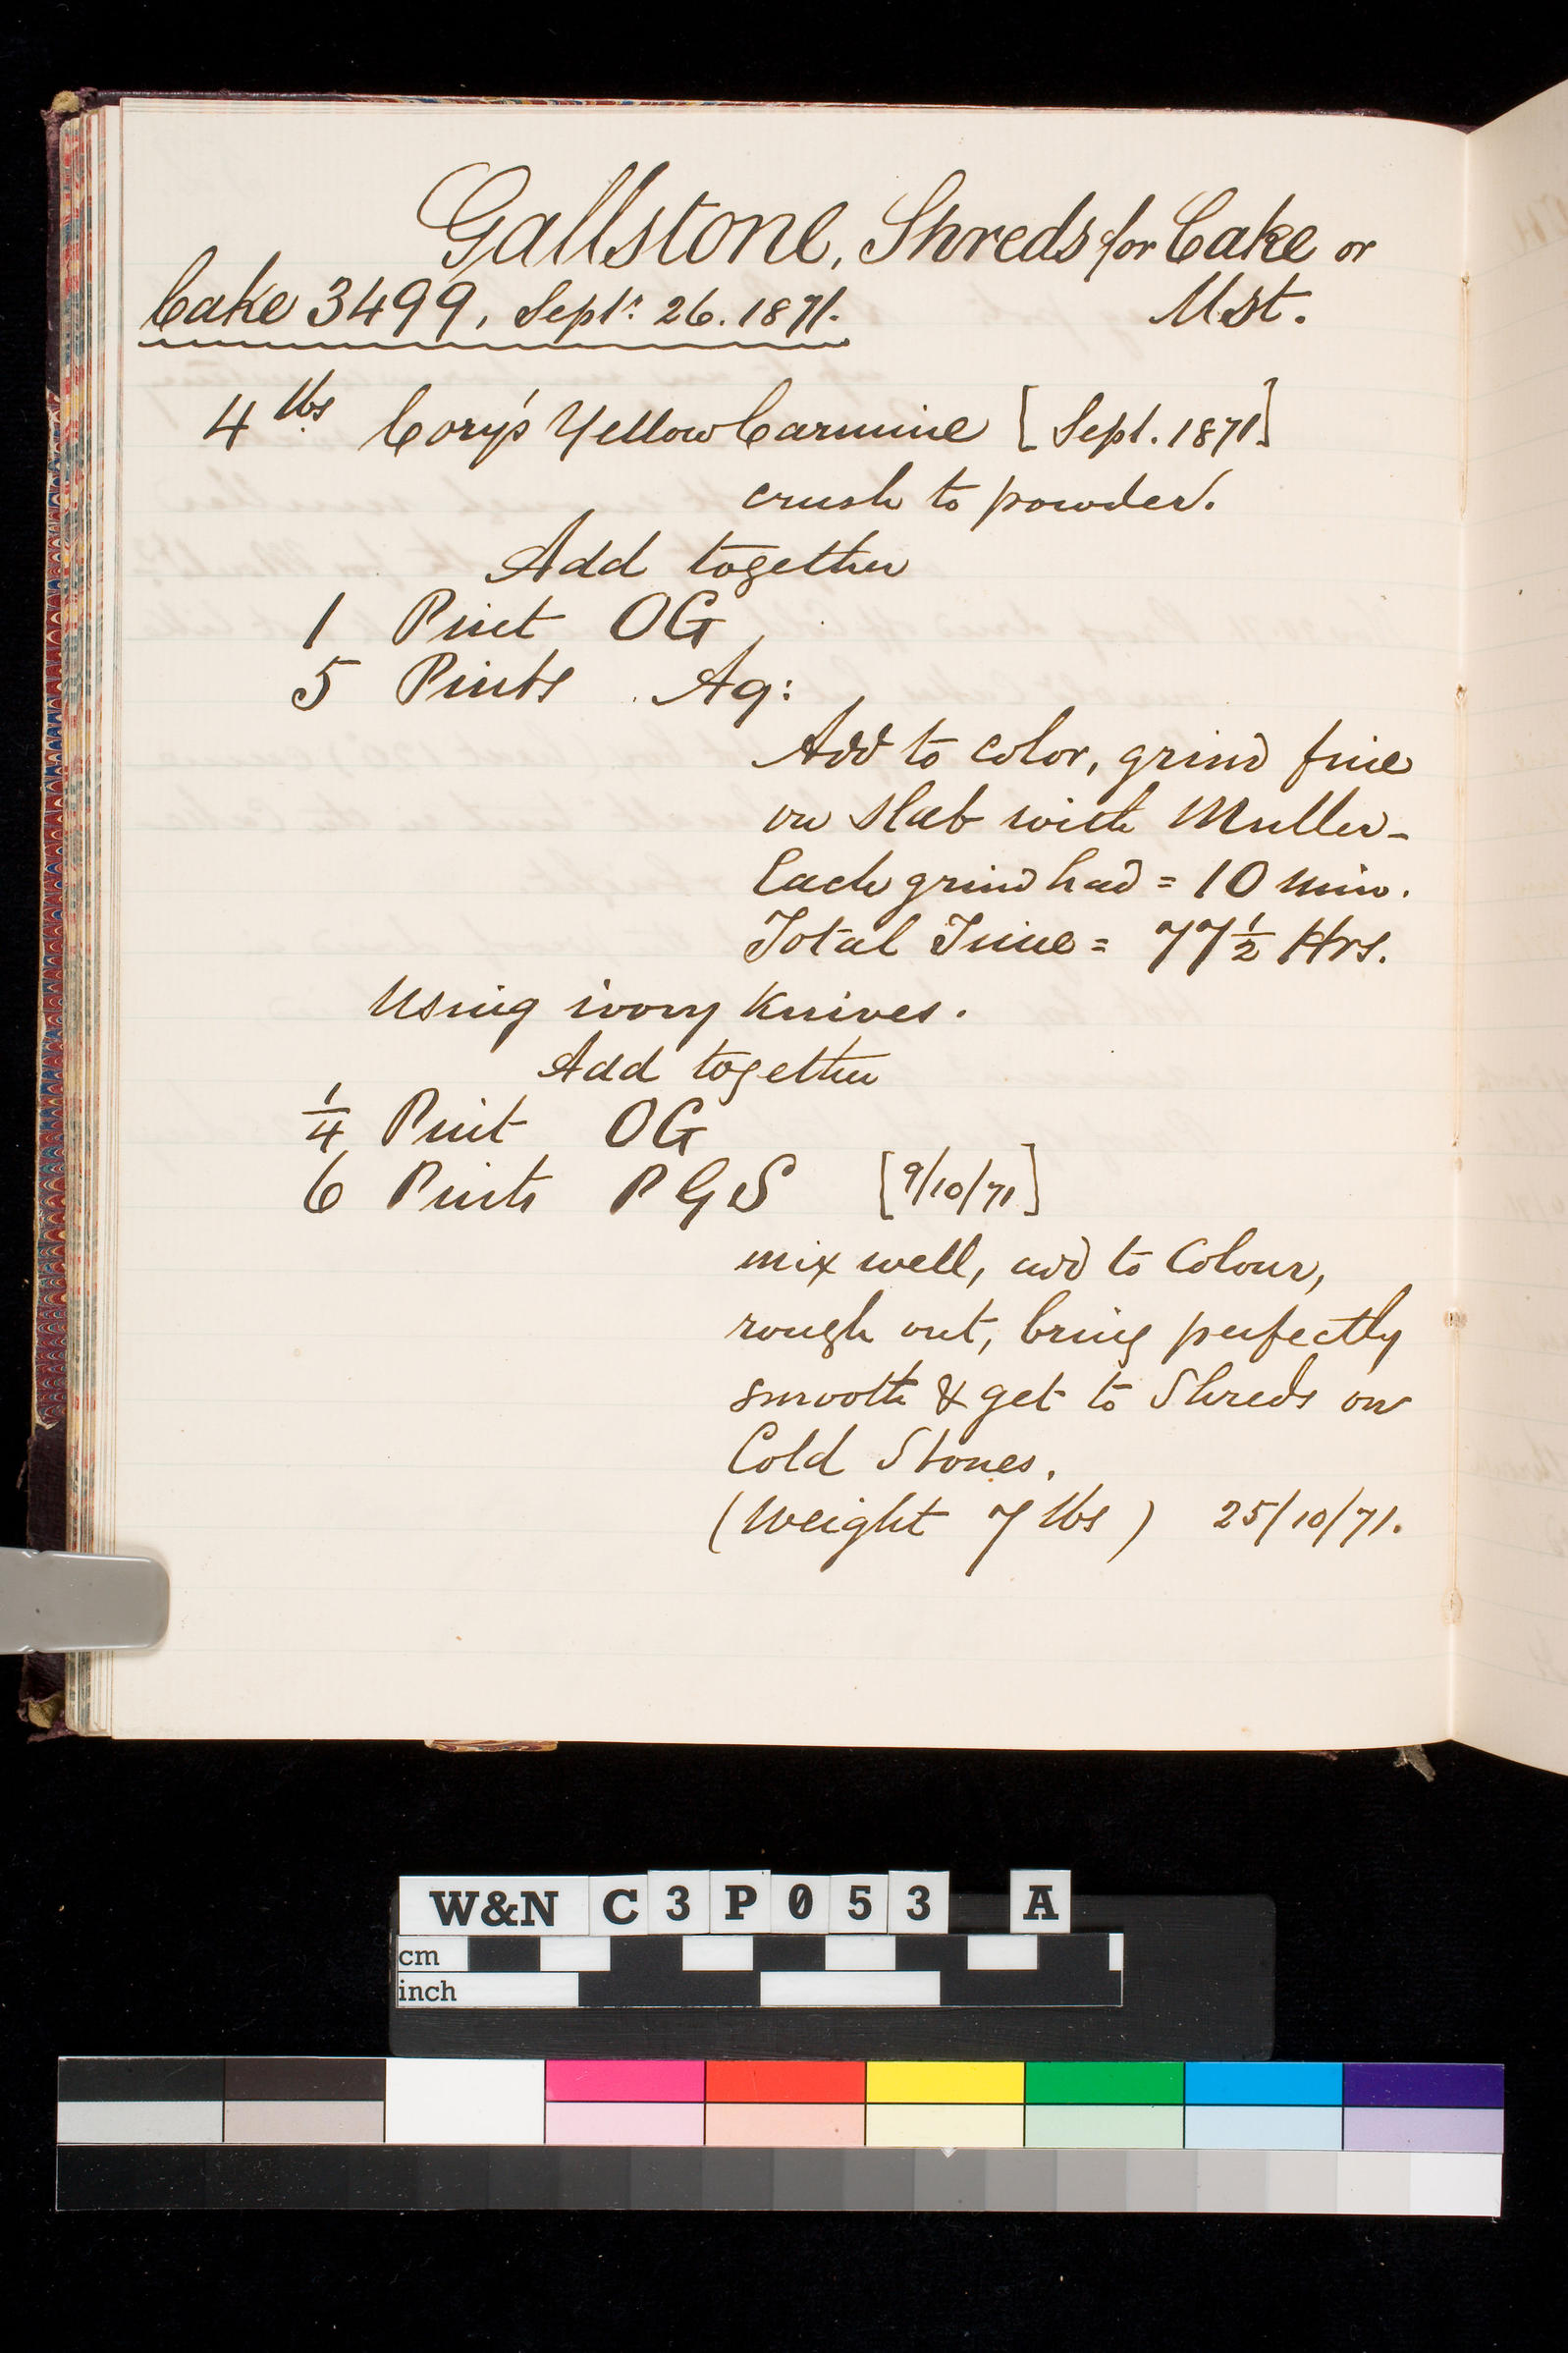 Gallstone, Shreds for Cake or
Cake 3499, Septr: 26. 1871. Mst.
4 lbs Cory's Yellow Carmine [Sept. 1871]
crush to powder.
Add together
1 Pint OG
5 Pints Aq:
Add to color, grind fine
on slab with Muller-
Each grind had = 10 min.
Total Time = 77 1/2 Hrs.
Using ivory Knives.
Add together
1/4 Pint OG
6 Pints P G S [9/10/71]
mix well, add to Colour,
rough out, bring perfectly
smooth & get to Shreds on
Cold Stones.
(Weight 7 lbs) 25/10/71.
W&N C3P053 A
cm
inch